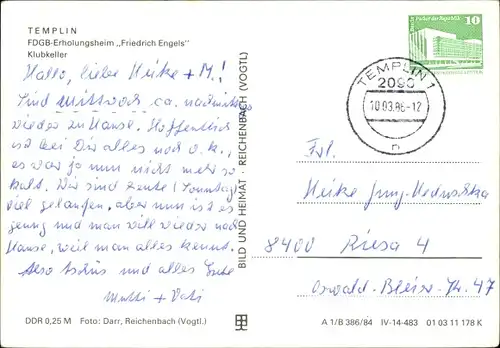 TEMPLIN
FDGB-Erholungsheim „Friedrich Engels"
Klubkeller
Hallo, liebe Heike + M.!
Sind Mittwoch ca. nachmittags
wieder zu Hause. Hoffentlich
ist bei Dir alles noch o.k.,
es war ja nun nicht mehr so
kalt. Wir sind heute (Sonntag)
viel gelaufen, aber nun ist es
genug und man will wieder nach
Hause, weil man alles kennt.
Also Tschüs und alles Gute
Mutti + Vati
DDR 0,25 M Foto: Darr, Reichenbach (Vogtl.)
BILD UND HEIMAT · REICHENBACH (VOGTL)
Berlin Palast der Republik
10
TEMPLIN 1
2090
10.03.86-12
n
Frl.
Heike
8400 Riesa 4
Oswald-
47
A 1/B 386/84 IV-14-483 01 03 11 178 K